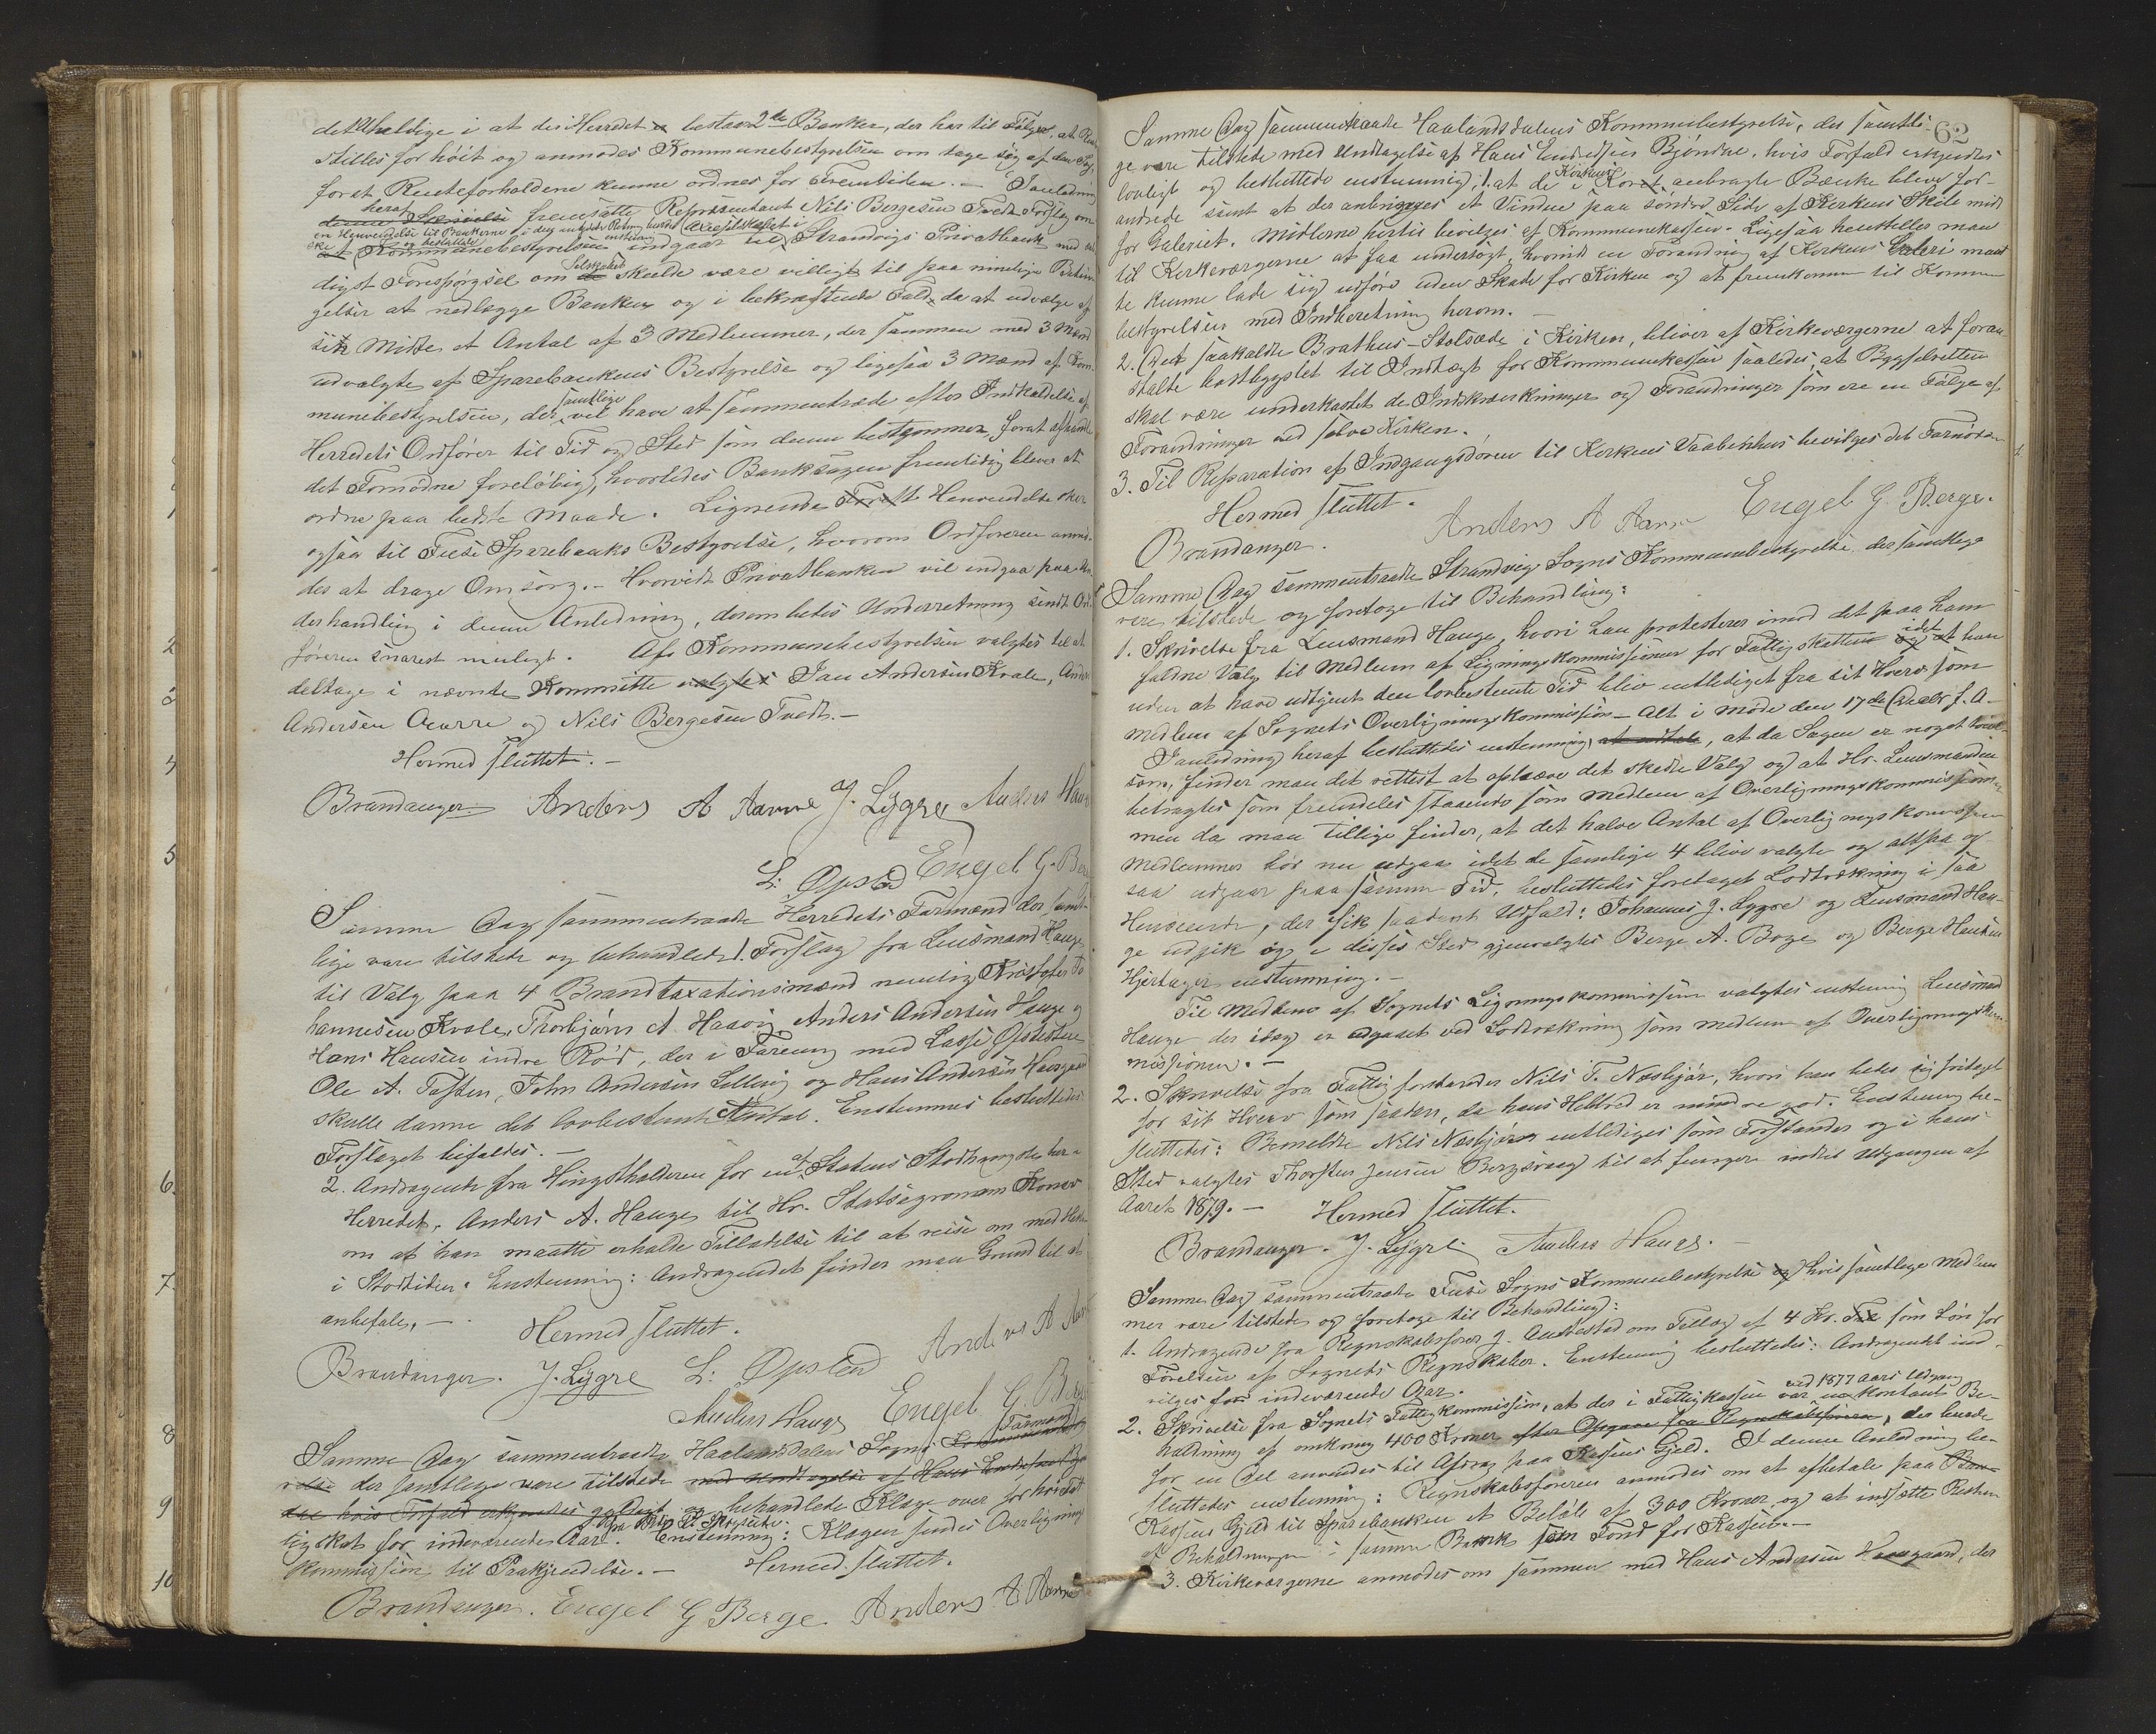 det uheldige i at der i Herredet er bestaar 2de Banker, der har til Følge, at
stilles for høit og anmodes Kommunebestyrelsen om tage sig af denne Sag,
forat Renteforholdene kunne ordnes for Fremtiden. — I Anledning
heraf
denne Skrivelse fremsatte Repræsentant Nils Bergesen Tvedt Forslag om
en Henvendelse til Bankerne i deg antydede Retning burde
ske og besluttede enstemmig Actieselskabet i
at Kommunebestyrelsen indgaar til Strandvigs Privatbank med
Selskabet
digst Forespørgsel om de skulde være villigt til paa rimelige Betin-
gelser at nedlægge Banken og i bekræftende Fald, da at udvælge af
sin Midte et Antal af 3 Medlemmer, der sammen med 3 Mænd
udvalgte af Sparebankens Bestyrelse og ligesaa 3 Mænd af Kom-
samtlige
munebestyrelsen, der vil have at sammentræde efter Indkaldelse af
Herredets Ordfører til Tid og Sted som denne bestemmer, forat afhandle
det Fornødne foreløbig, hvorledes Banksagen fremtidig bliver at
ordne paa bedste Maade. Lignende Henvendelse sker
ogsaa til Fuse Sparebanks Bestyrelse, hvorom Ordføreren anmo-
des at drage Omsorg. — Hvorvidt Privatbanken vil indgaa paa Un-
derhandling i denne Anledning, derom bedes Underretning sendt Ord-
føreren snarest muligt. Af Kommunebestyrelsen valgtes til at
deltage i nævnte Kommitte valgtes Jan Andersen Kvale, Anders
Andersen Aarre og Nils Bergesen Tvedt. —
Hermed sluttet. —
Brandanger Anders A Aarre J. Lygre Anders Hauge
L: Opsted Engel G. Berge
Samme Dag sammentraadte Herredets Formænd der samt-
lige vare tilstede og behandlede 1. Forslag fra Lensmand Hauge
til Valg paa 4 Brandtaxationsmænd nemlig Kristofer Jo-
hannesen Kvale, Thorbjørn A. Haavig, Anders Andersen Hauge og
Hans Hansen indre Rød, der i Forening med Lasse Opsteen
Ole A. Tassen, John Andersen Lelling og Hans Andersen Havsgaard
skulle danne det lovbestemte Antal. Enstemmes besluttedes
Forslaget bifaldes. —
2. Andragende fra Hingstholderen for en af Statens Stodhingster her i
Herredet, Anders A. Hauge, til Hr. Statsagronom Konow
om at han maatte erholde Tilladelse til at reise om med Hesten
i Stodtiden. Enstemmig: Andragendet finder man Grund til at
anbefale. —
Hermed sluttet.
Brandanger. J. Lygre L: Opsted Anders A Aarre
Anders Hauge Engel G. Berge
Formænd
Samme Dag sammentraadte Haalandsdalens Sogns Kommunebesty-
relse der samtlige vare tilstede med Undtagelse af Hans Endresen Bjøn-
dne hvis Forfald erkjendtes gyldigt og behandlede Klage over for høi Fat-
tigskat for indeværende Aar. Enstemmig: Klagen sendes Overlignings
kommission til Paakjendelse. — Hermed sluttet.
Brandanger. Engel G Berge. Anders A Aarre
62
Samme Dag sammentraadte Haalandsdalens Kommunebestyrelse, der samtli-
ge vare tilstede med Undtagelse af Hans Endresen Bjøndne, hvis Forfald erkjendtes
Kirkens
lovligt og besluttede enstemmig: 1. at de i Koret anbragte Bænke blive for-
andrede samt at der anbringes et Vindue paa søndre Side af Kirkens Skib midt
for Galeriet. Midlerne hertil bevilges af Kommunekassen. Ligesaa henstilles man
til Kirkeværgerne at faa undersøgt, hvorvidt en Forandring af Kirkens Galeri maat
te kunne lade sig udføre uden Skade for Kirken og at fremkomme til Kommune
bestyrelsen med Indberetning herom. —
2. Det saakaldte Brathus-Stolsæde i Kirken, bliver af Kirkeværgerne at foran
stalte bortbygslet til Indtægt for Kommunekassen saaledes, at Bygselretten
skal være underkastet de Indskrænkninger og Forandringer som ere en Følge af
Forandringer ved selve Kirken.
3. Til Reparation af Indgangsdøren til Kirkens Vaabenhus bevilges det Fornødne.
Hermed sluttet.
Brandanger. Anders A Aarre Engel G. Berge.
Samme Dag sammentraadte Strandvigs Sogns Kommunebestyrelse der samtlige
vare tilstede og foretoges til Behandling:
1. Skrivelse fra Lensmand Hauge, hvori han protesterer imod det paa ham
idet
faldne Valg til Medlem af Ligningskommissionen for Fattigskatten og at han
uden at have udtjent den lovbestemte Tid blev entlediget fra sit Hverv som
Medlem af Sognets Overligningskommission — Alt i Møde den 17de Decbr f. A.
I Anledning heraf besluttedes enstemmig, at da Sagen er noget tvivl-
som, finder man det rettest at ophæve det skedte Valg og at Hr. Lensmanden
betragtes som fremdeles staaende som Medlem af Overligningskommissionen,
men da man tillige finder, at det halve Antal af Overligningskommissions
Medlemmer bør nu udgaa idet de samtlige 4 blive valgte og altsaa og
saa udgaar paa samme Tid, besluttedes foretaget Lodtrækning i saa
Henseende, der fik saadant Udfald: Johannes J. Lygre og Lensmand Hau-
ge udgik og i disses Sted gjenvalgtes Berge A. Boge og Berge Hansen
Hjertager enstemmig. —
Til Medlem af Sognets Ligningskommission valgtes enstemmig Lensmand
Hauge der idag er udgaaet ved Lodtrækning som Medlem af Overligningskom-
missionen. —
2. Skrivelse fra Fattigforstander Nils T. Nesbjør, hvori han bedes sig fritaget
for sit Hverv som saadan, da hans Helbred er mindre god. Enstemmig be-
sluttedes: Bemeldte Nils Nesbjør entlediges som Forstander og i hans
Sted valgtes Thorsten Jensen Bergsvaag til at fungere indtil Udgangen af
Aaret 1879. — Hermed sluttet.
Brandanger. J. Lygre Anders Hauge. —
Samme Dag sammentraadte Fuse Sogns Kommunebestyrelse og hvis samtlige Medlem
mer vare tilstede og foretoges til Behandling:
1. Andragende fra Regnskabsfører J. Austestad om Tillæg af 4 Kr. som Løn for
Førelsen af Sognets Regnskaber. Enstemmig besluttedes: Andragendet ind-
vilges for indeværende Aar.
ved 1877 Aars Udgang
2. Skrivelse fra Sognets Fattigkommission, at der i Fattigkassen var en kontant Be-
holdning af omkring 400 Kroner efter Opgave fra Regnskabsføreren, der burde
for en Del anvendes til Afdrag paa Kassens Gjeld. I denne Anledning be-
sluttedes enstemmig: Regnskabsføreren anmodes om at afbetale paa
Kassens Gjeld til Sparebanken et Beløb af 300 Kroner og at indsætte Resten
af Beholdningen i samme Bank som Fond for Kassen. —
3. Kirkeværgerne anmodes om sammen med Hans Andersen Havsgaard, der